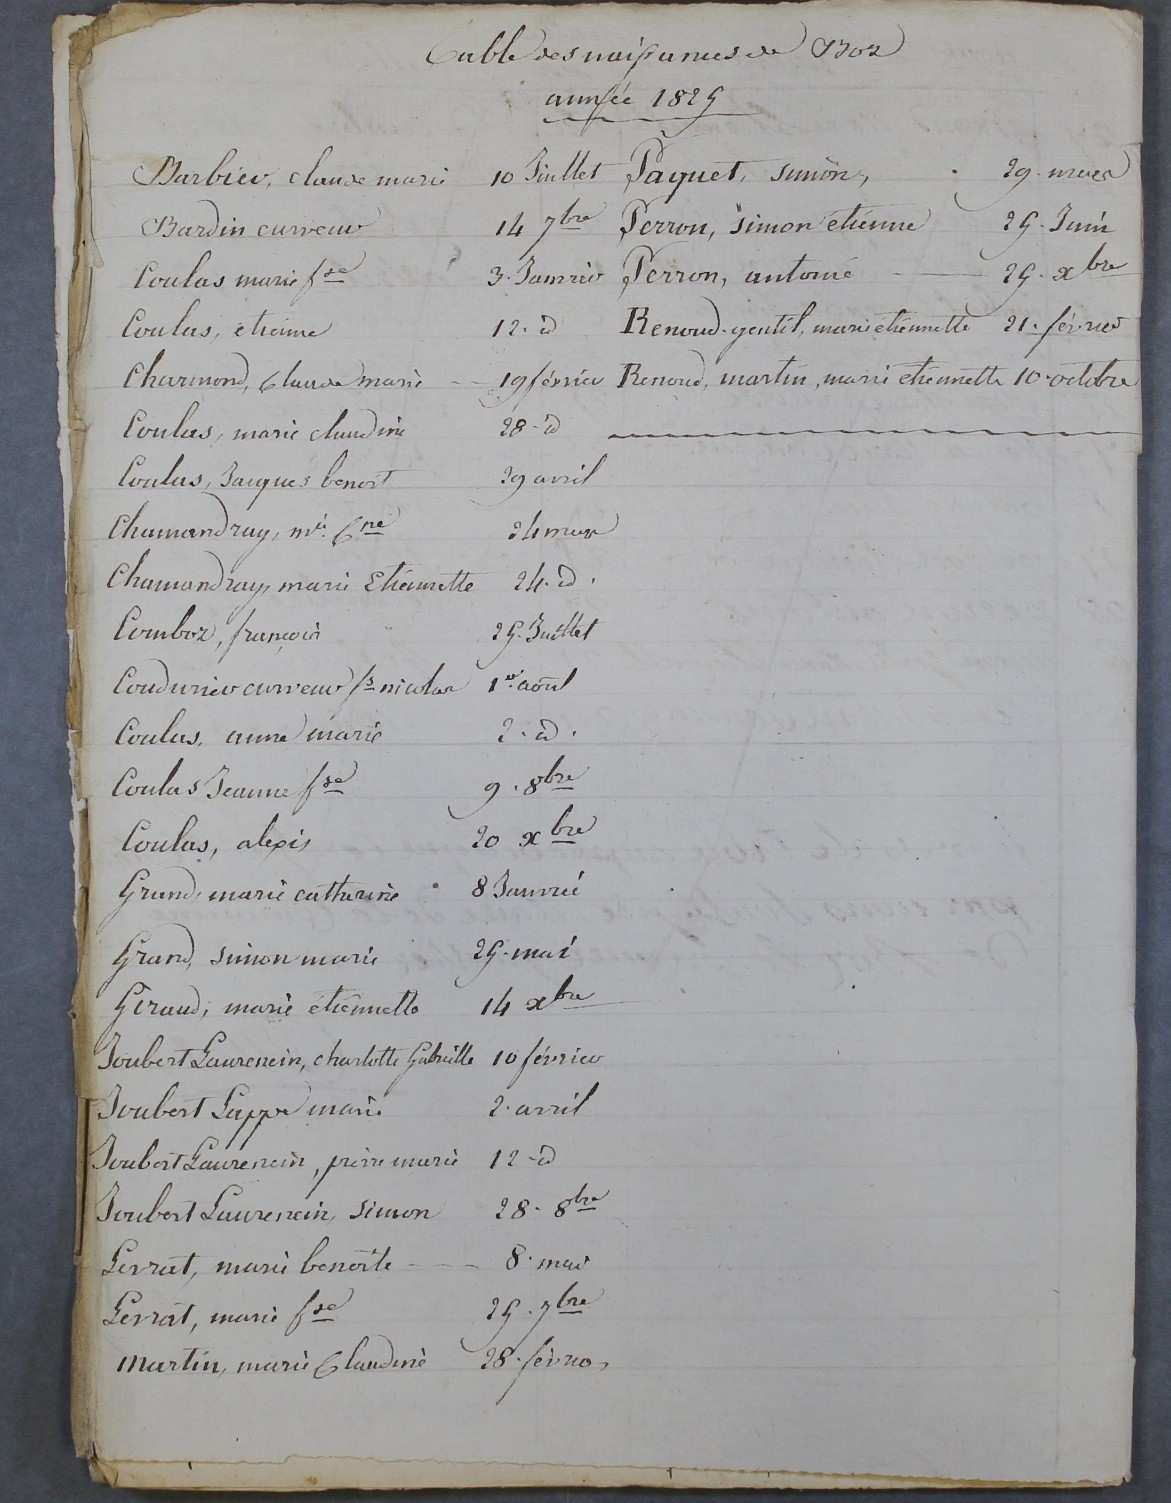 Table des naissances de Boz
année 1825
Barbier, claude marie 10 Juillet
Bardin curveur 14 7bre
Coulas marie fse 3. Janvier
Coulas, etienne 12. id
Charnond, Claude marie 19 février
Coulas, marie claudine 28 - id
Coulas, Jacques benoit 29 avril
Chamandray, mie Cne 24 mars
Chamandray, marie Etiennette 24. id.
Comboz, françois 25. Juillet
Coudurier curveur fs nicolas 1er. août
Coulas, anne marie 2. id.
Coulas Jeanne fse 9. 8bre
Coulas, alexis 20 xbre
Grand, marie catherine 8 Janvié
Grand, simon marie 25. mai
Giraud, marie étiennette 14 xbre
Joubert Laurencin, charlotte Gabrielle 10 février
Joubert Lappe marie 2. avril
Joubert Laurencin, pierre marie 12 - id
Joubert Laurencin, simon 28. 8bre
Levrat, marie benoite 8. mai
Levrat, marie fse 25. 7bre
Martin, marie Claudine 28. février
Paquet, simon, 29. mars
Perron, simon etienne 25. Juin
Perron, antoine 25. xbre
Renoud-gentil, marie etiennette 21. février
Renoud, martin, marie etiennette 10. octobre